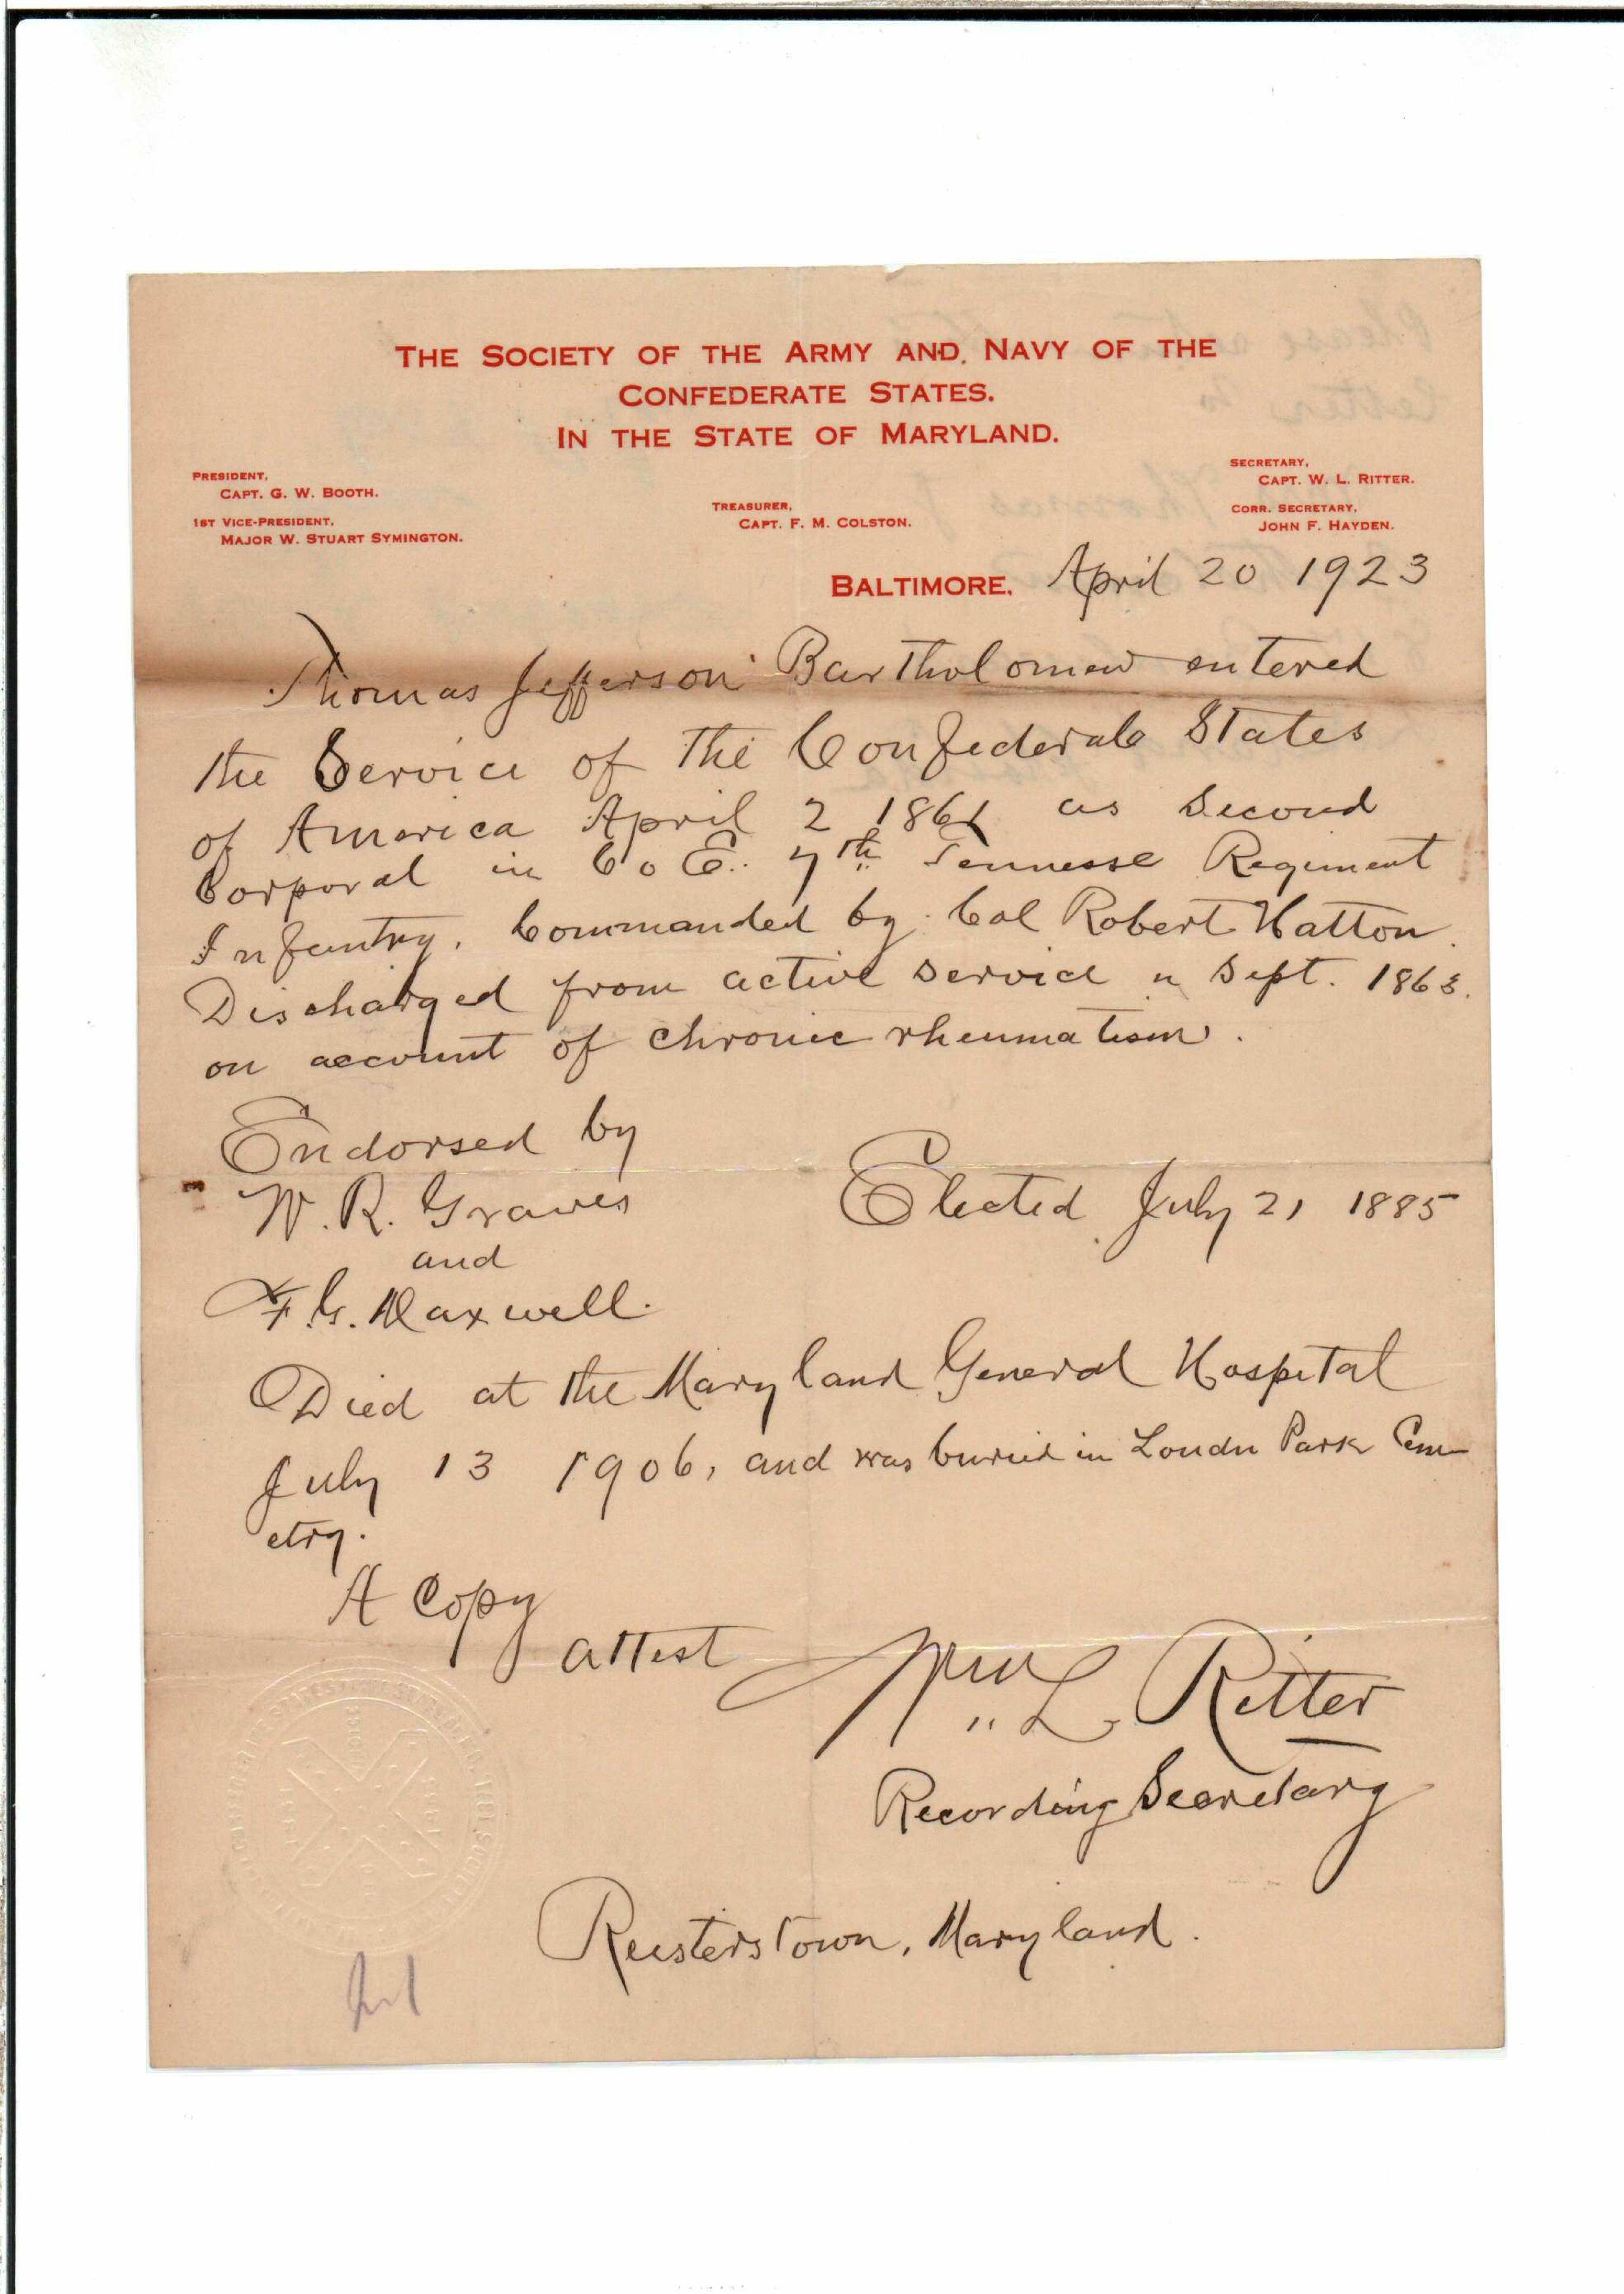 THE SOCIETY OF THE ARMY AND NAVY OF THE
CONFEDERATE STATES.
IN THE STATE OF MARYLAND.
PRESIDENT,
CAPT. G. W. BOOTH.
1ST VICE-PRESIDENT,
MAJOR W. STUART SYMINGTON.
TREASURER,
CAPT. F. M. COLSTON.
SECRETARY,
CAPT. W. L. RITTER.
CORR. SECRETARY,
JOHN F. HAYDEN.
BALTIMORE. April 20 1923
Thomas Jefferson Bartholomew entered
the Service of The Confederate States
of America April 2 1861 as Second
Corporal in Co E. 7th Tennesse Regiment
Infantry. Commanded by Col Robert Hatton.
Discharged from active service in Sept. 1863.
on account of chronic rheumatism.
Endorsed by
W. R. Graves
and
F. G. Maxwell.
Elected July 21 1885
Died at the Maryland General Hospital
July 13 1906, and was buried in Loudn Park Cem-
etry.
A Copy
attest Wm L. Ritter
Recording Secretary
Reisterstown, Maryland.